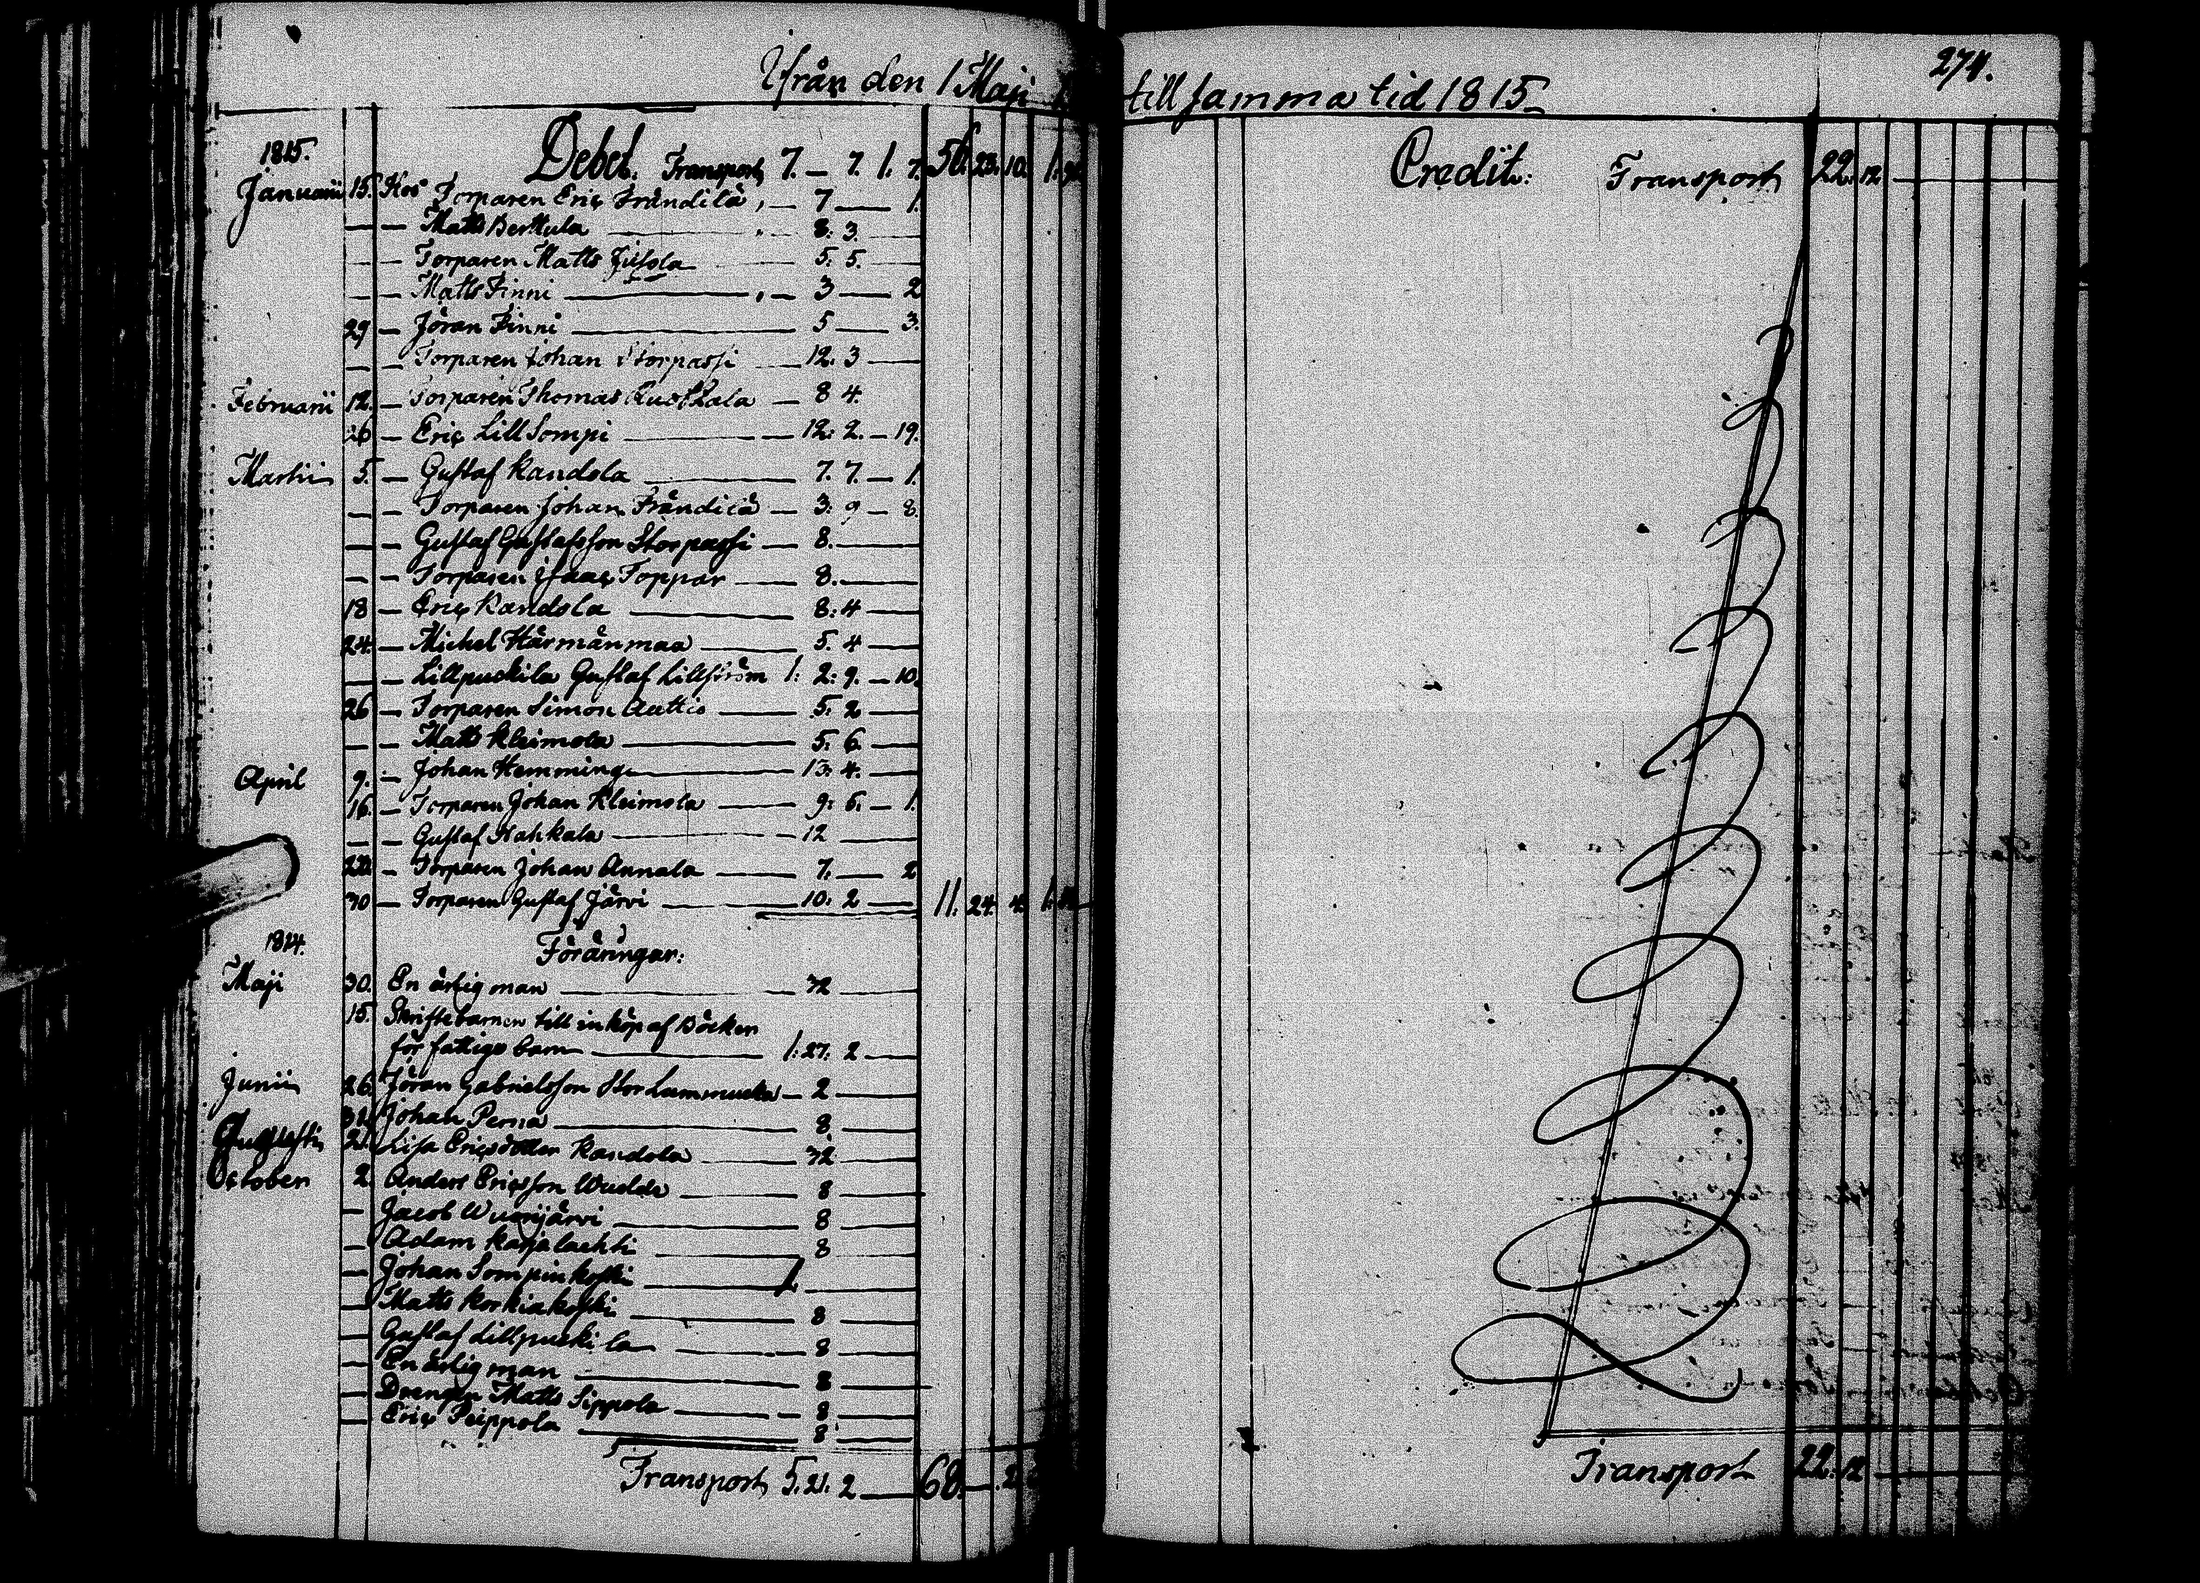 Ifrån den 1 Maji
1815.
Debet. Transport 7. — 7. 1. 7. 56. 23. 10. 1.
Januarii 15. Hos Torparen Eric Frändilä — 7 — 1.
— — Matts Berttula — 8. 3. —
— — Torparen Matts Julola — 5. 5. —
— — Matts Finni — 3 — 2
29 — Jöran Finni — 5 — 3.
— — Torparen Johan Storpassi — 12. 3 —
Februarii 12. — Torparen Thomas — 8 4
26 — Eric Lill Sompi — 12. 2. — 19.
Martii 5. — Gustaf Kandola — 7. 7. — 1.
— — Torparen Johan Frändilä — 3. 9 — 8.
— — Gustaf Gustafsson Storpassi — 8. —
— — Torparen Isaac Toppar — 8. —
18 — Eric Kandola — 8. 4 —
24. — Michel Härmänmaa — 5. 4 —
— — Lillpuckila Gustaf Lillström 1: 2: 9. — 10.
26 — Torparen Simon Auttio — 5. 2 —
— — Matts Kleimola — 5. 6. —
April 9. — Johan Hemming — 13. 4. —
16. — Torparen Johan Kleimola — 9. 6. — 1.
— — Gustaf Hahkala — 12 —
— Torparen Johan Annala — 7. — 2
30 — Torparen Gustaf Järvi — 10. 2 — 11. 24. 4. 1.
1814.
Föräringar:
Maji 30. En ärlig man — 32 —
15. Skriftebarnen till inköp af Böcker
för fattiga barn — 1: 27. 2 —
Junii 26 Jöran Gabrielsson Stor Lammucka — 2 —
31. Johan Perna — 8 —
Augusti 21. Lisa Ericsdotter Kandola — 32 —
October 2 Anders Ericsson — 8 —
— Jacob Wuorijärvi — 8 —
— Adam Karjalachti — 8 —
— Johan Sompinkoski — 1. —
— Matts Korkiakoski — 8 —
— Gustaf Lillpuckila — 8 —
— En ärlig man — 8 —
— Drengen Matts Sippola — 8 —
— Eric Peippola — 8 —
Transport 5. 21. 2 — 68. — 2
till samma tid 1815
274.
Credit: Transport 22. 12 —
Transport 22. 12 —